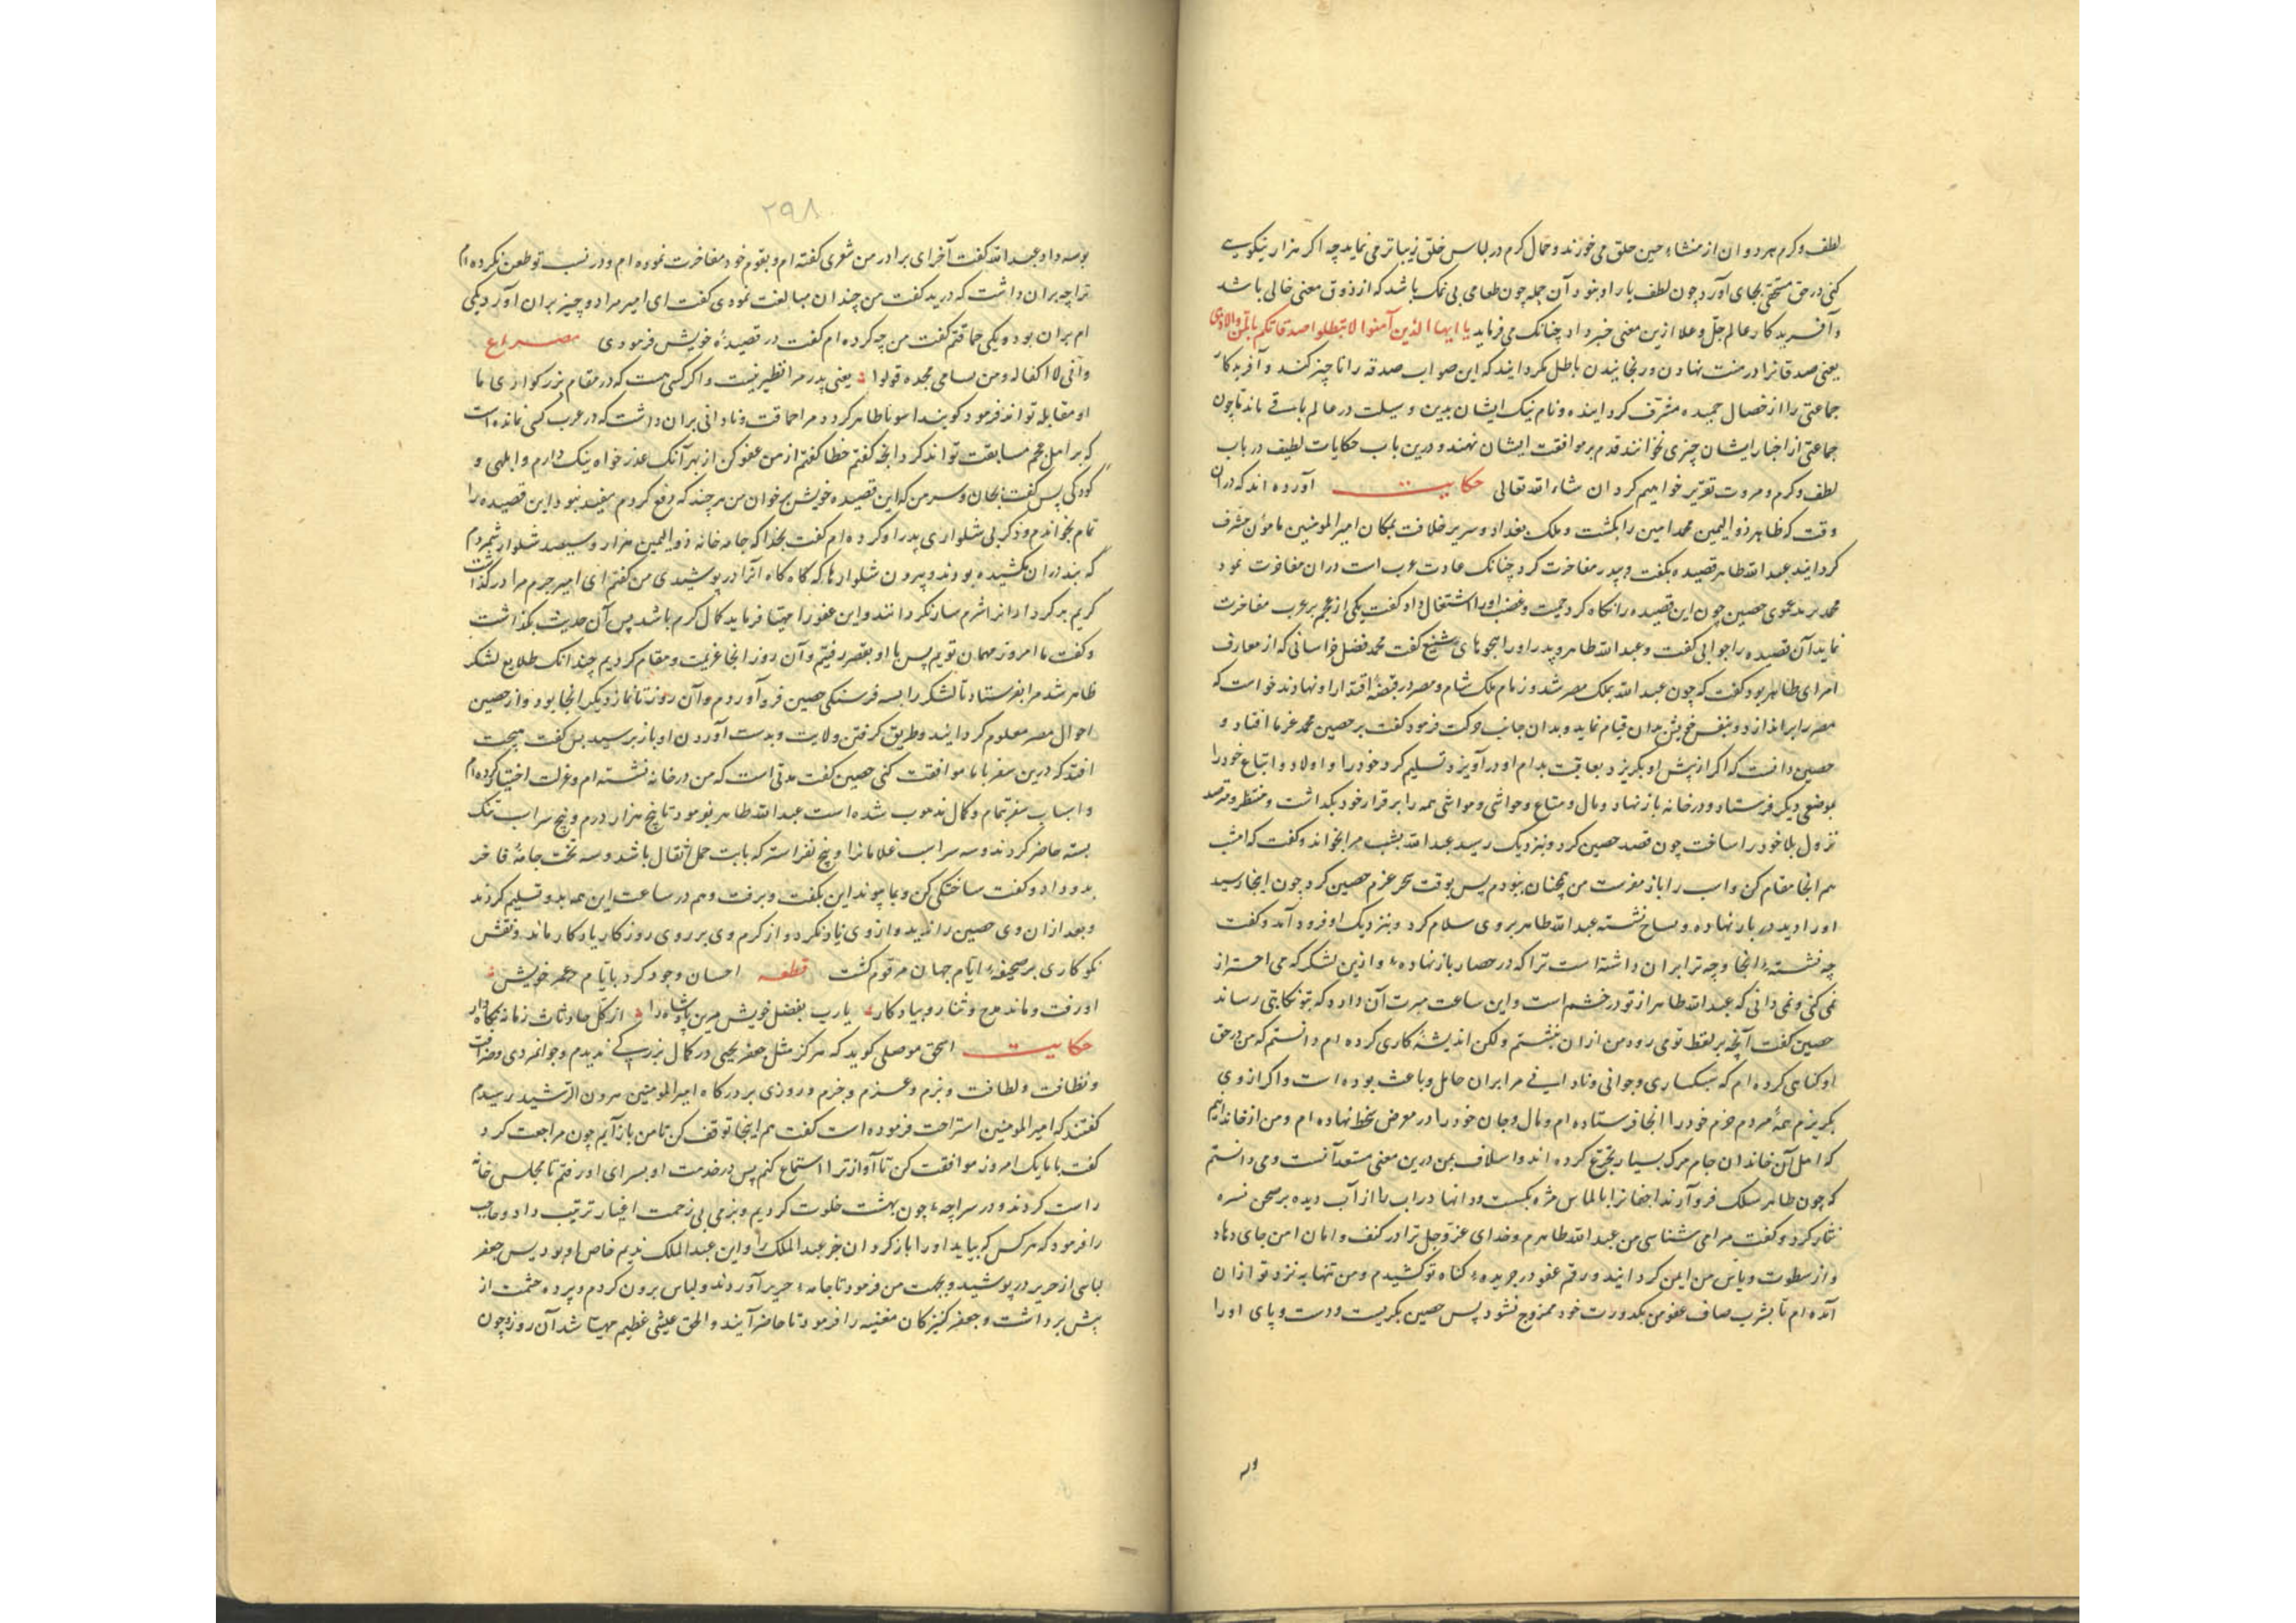 لطف و کرم هر دو ان از منشاء حسن خلق می خوزند و جمال کرم در لباس خلق زیباتر می نماید چه اکر هزار نیکویی
کنی در حق مستحقی بجای آورد چون لطف یار او نبود آن جمله چون طعامی بی نمک باشد که از ذوق معنی خالی باشد
و آفریدکار عالم جل و علا ازین معنی خبر داد چنانک می فرماید یا ایها الذین آمنوا لا تبطلوا صدقاتکم بالمن والاذی
یعنی صدقاترا در منت نهادن و رنجانیدن باطل مکردانید که این صواب صدقه را ناچیز کند و آفریدکار
جماعتی را از خصال حمیده مشرف کردانیده و نام نیک ایشان بدین وسیلت در عالم باقی ماند تا چون
جماعتی از اخبار ایشان چیزی بخوانند قدم بر موافقت ایشان نهند و درین باب حکایات لطیف در باب
لطف و کرم و مروت تقریر خواهیم کرد ان شاء الله تعالی حکایت آورده اند که در ان
وقت که طاهر ذو الیمین محمد امین را بکشت و ملک بغداد و سریر خلافت بمکان امیر المومنین مامون مشرف
کردانید عبد الله طاهر قصیده بکفت و بپدر مفاخرت کرد چنانک عادت عرب است دران مفاخرت نمود
محمد یزید عموی حصین چون این قصیده را نکاه کرد حمیت و غضب اورا اشتغال داد کفت یکی از عجم بر عرب مفاخرت
نماید آن قصیده را جوابی کفت و عبد الله طاهر و پدر اورا هجوهای شنیع کفت محمد فضل خراسانی که از معارف
امرای طاهر بود کفت که چون عبد الله بملک مصر شد و زمام ملک شام و مصر در قبضهٔ اقتدار او نهادند خواست که
مصر را براندازد و بنفس خویش بدان قیام نماید و بدان جانب حرکت فرمود کفت بر حصین محمد عزما افتاد و
حصین دانست که اکر از پیش او بکریزد بعاقبت بدام او در آویزد تسلیم کرد خود را و اولاد و اتباع خود را
بموضعی دیکر فرستاد و در خانه باز نهاد و مال و متاع و حواشی و مواشی همه را بر قرار خود بکذاشت و منتظر و مترصد
نزول بلا خود را ساخت چون قصد حصین کرد و بنزدیک رسید عبد الله بشب مرا بخواند و کفت که امشب
هم انجا مقام کن و اسب را باز مفرست من همچنان بنودم پس بوقت سحر عزم حصین کرد چون انجا رسید
اورا دید در باز نهاده و بساح نشسته عبد الله طاهر بروی سلام کرد و بنزدیک او فرود آمد و کفت
چه نشستهٔ انجا و چه ترا بران داشته است ترا که در حصار باز نهادهٔ و ازین لشکر که می احتراز
نمی کنی و نمی دانی که عبد الله طاهر از تو در خشم است و این ساعت میرت آن دارد که بتو نکایتی رساند
حصین کفت آنچه بر لفظ تو می رود من ازان بنشستم ولکن اندیشهٔ کاری کرده ام و دانستم که من در حق
او کناهی کرده ام که سبکساری و جوانی و نادانی مرا بران حامل و باعث بوده است و اکر از وی
بکریزم همهٔ مردم حرم خود را انجا فرستاده ام و مال و جان خود را در معرض خطر نهاده ام و من از خاندانیم
که اهل آن خاندان جام مرک بسیار تجرع کرده اند و اسلاف بمن درین معنی مستعد آنست و می دانستم
که چون طاهر سلک فرو آرند اجفانرا بالماس مژه بکسست و دانها در اب را از آب دیده بر صحن نسره
نثار کرد و کفت مرا می شناسی من عبد الله طاهرم و خدای عز و جل ترا در کنف و امان امن جای دهاد
و از سطوت و باس من ایمن کردانید و رقم عفو در جریدهٔ کناه تو کشیدم و من تنها به نزد تو ازان
آمده ام تا بشرب صاف عفو من بکدورت خود ممزوج نشود پس حصین بکریست و دست و پای اورا
۲۹۸
بوسه داد عبد الله کفت آخر ای برادر من شعری کفته ام و بقوم خود مفاخرت نموده ام و در نسب تو طعن نکرده ام
ترا چه بران داشت که در بد کفت من چندان مبالغت نمودی کفت ای امیر مرا دو چیز بران آورد یکی
ام بران بوده یکی حماقتم کفت من چه کرده ام کفت در قصیدهٔ خویش فرمودی مصراع
یعنی پدر مرا نظیر نیست و اکر کسی هست که در مقام بزرکواری ما
او مقابله تواند فرمود کو بیند مرا حماقت و نادانی بران داشت که در عرب کسی نمانده است
که بر اهل عجم مسابقت تواند کرد انچه کفتم خطا کفتم از من عفو کن از بهر آنک عذر خواه نیک دارم و ابلهی و
کودکی پس کفت بجان و سر من که این قصیده خویش بر خوان من هر چند که دفع کردم مفید نبود این قصیده را
تمام بخواندم و ذکر بی شلواری پدر او کرده ام کفت بخدا که جامه خانه ذو الیمین هزار و سیصد شلوار شمردم
که بند دران نکشیده بودند و بیرون شلوارها که کاه کاه آنرا در پوشیدی من کفتم ای امیر جرم مرا در کذاشت
و کفت ما امروز مهمان توییم پس با او بقصر رفتیم و آن روز انجا عزیمت و مقام کردیم چندانک طلایع لشکر
ظاهر شد مرا بفرستاد تا لشکر را بسه فرسنکی حصین فرو آوردم و آن روز تا نماز دیکر انجا بود و از حصین
احوال مصر معلوم کردانید و طریق کرفتن ولایت و بدست آوردن او باز پرسید پس کفت هیچت
افتد که درین سفر با ما موافقت کنی حصین کفت مدتی است که من در خانه نشسته ام و عزلت اختیار کرده ام
و اسباب سفر بتمام و کمال شده است عبد الله طاهر بفرمود تا پنج هزار درم و پنج سر اسب تنک
بسته حاضر کردند و سه سر اسب غلامانرا و پنج نفر استر که بابت حمل اثقال باشد و سه تخت جامهٔ فاخر
بدو داد و کفت ساختکی کن و بما پیوند این بکفت و برفت و هم در ساعت این همه بدو تسلیم کردند
و بعد ازان وی حصین را ندید و از وی یاد نکرد و از کرم وی بر روی روزکار یادکار ماند و نقش
نکوکاری بر صحیفهٔ ایام جهان مرقوم کشت قطعه احسان و جود کرد بایام عمر خویش
او رفت و ماند مدح و ثنا رو بیادکار یارب بفضل خویش مرین پادشاه را از کل حادثات زمانه نکاه دار
حکایت اسحق موصلی کوید که هرکز مثل جعفر یحیی در کمال بزرکی ندیدم و جوانمردی و
و نظافت و لطافت و بزم و عزم و حزم و روزی بر درکاه امیر المومنین هرون الرشید رسیدم
کفتند که امیر المومنین استراحت فرموده است کفت هم اینجا توقف کن تا من باز آیم چون مراجعت کرد
کفت با ما یک امروز موافقت کن تا آواز ترا استماع کنم پس در خدمت او بسرای او رفتم تا مجلس خانه
راست کردند و در سراچهٔ چون بهشت خلوت کردیم و بزمی بی زحمت اغیار ترتیب داد و حاجب
را فرمود که هر کس که بیاید اورا باز کردان جز عبد الملک را و این عبد الملک ندیم خاص او بود پس جعفر
لباسی از حریر در پوشید و بجهت من فرمود تا جامهٔ حریر آوردند و لباس برون کردم و پرده حشمت از
پیش برداشت و جعفر کنیزکان مغنیه را فرمود تا حاضر آیند و الحق عیشی عظیم مهیا شد آن روز چون